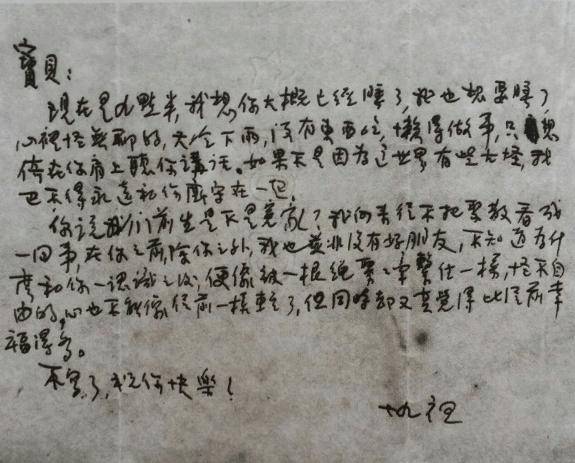 寶貝：
現在是九點半，我想你大概已經睡了，我也想要睡了
心裡怪無聊的，天冷下雨，沒有東西吃，懶得做事，只想
倚在你肩上聽你講話。如果不是因為這世界有些古怪，我
巴不得永遠和你廝守在一起。
你說我們前生是不是冤家？我向來從不把聚散看成
一回事，在你之前，除你之外，我也並非沒有好朋友，不知道為什
麼和你一認識之後，便像被一根繩緊緊牽繫住一樣，怪不自
由的，心也不能像從前一樣輕了，但同時卻又真覺得比從前幸
福得多。
不寫了，祝你快樂！
十九夜